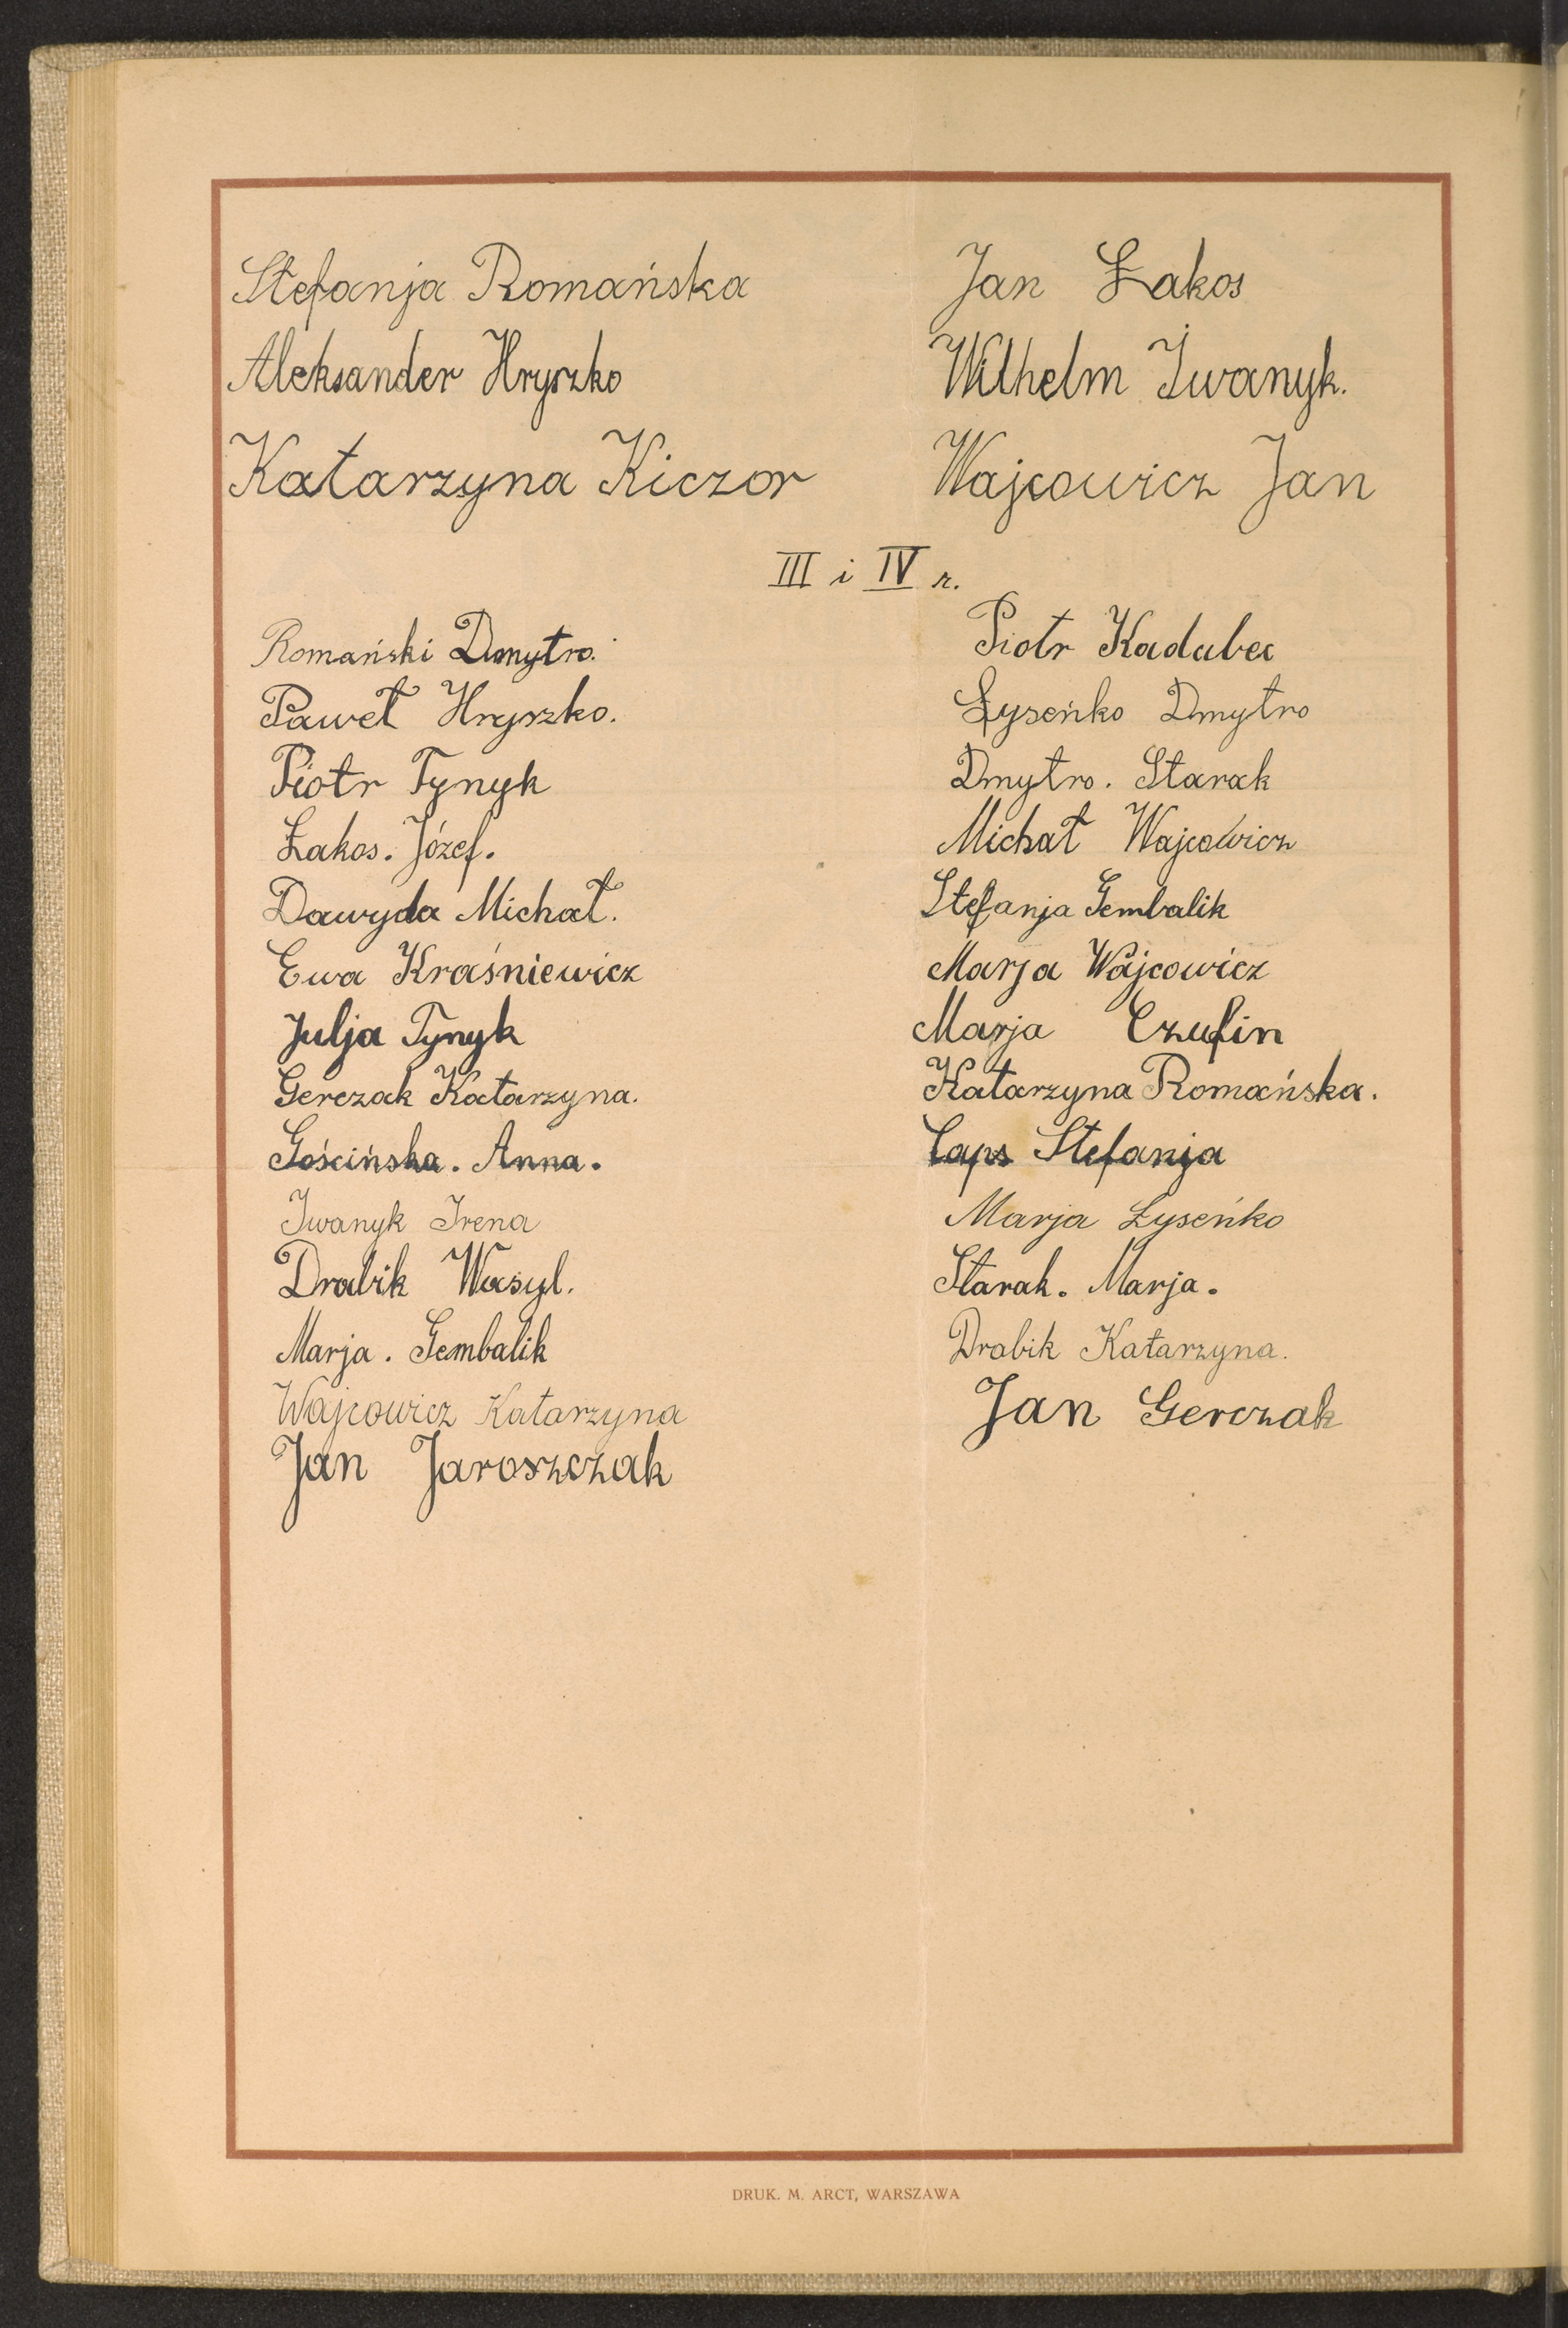 Stefanja Romańska
Aleksander Hryszko
Katarzyna Kiczor
Jan Łakos
Wilhelm Iwanyk.
Wajcowicz Jan
III i IV r.
Romański Dmytro.
Paweł Hryszko.
Piotr Tynyk
Łakos. Józef.
Dawyda Michał.
Ewa Kraśniewicz
Julja Tynyk
Gerczak Katarzyna.
Gościńska. Anna.
Iwanyk Irena
Drabik Wasyl.
Marja. Gembalik
Wajcowicz Katarzyna
Jan Jaroszczak
Piotr Kadubec
Łyseńko Dmytro
Dmytro. Starak
Michał Wajcowicz
Stefanja Gembalik
Marja Wajcowicz
Marja Czufin
Katarzyna Romańska.
Caps Stefanja
Marja Łyseńko
Starak. Marja.
Drabik Katarzyna.
Jan Gerczak
DRUK. M. ARCT, WARSZAWA